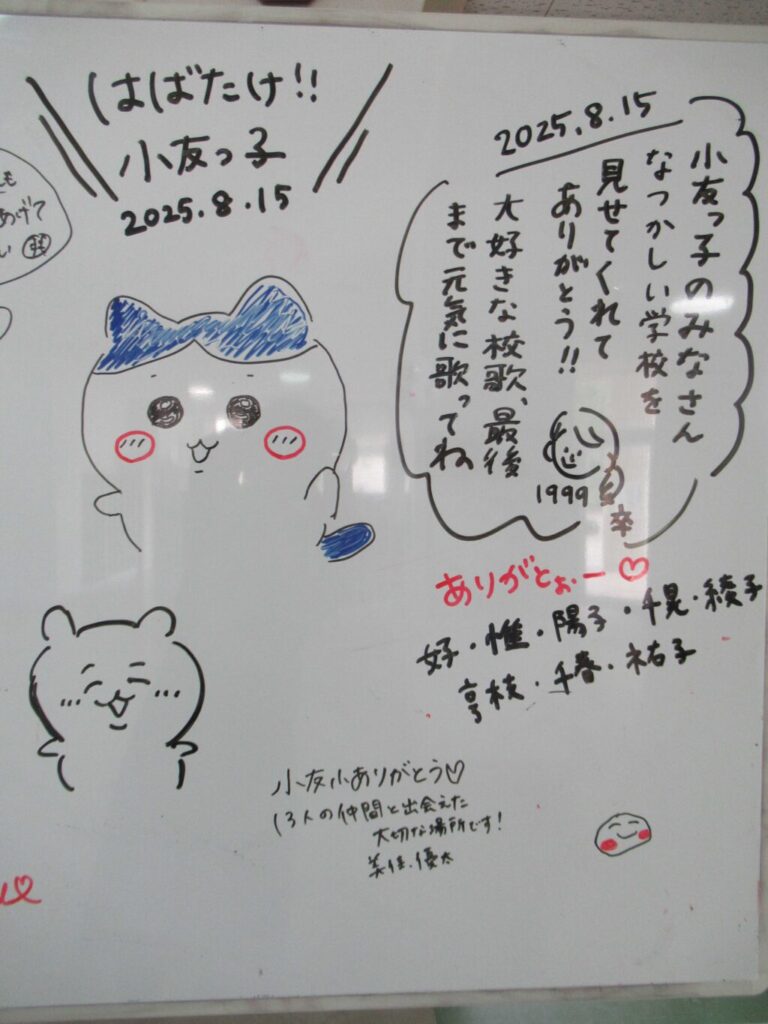 はばたけ!!
小友っ子
2025.8.15
も
あげて
い
2025.8.15
小友っ子のみなさん
なつかしい学校を
見せてくれて
ありがとう!!
大好きな校歌、最後
まで元気に歌ってね
1999
卒
ありがとぉー♡
好・惟・陽子・千晃・綾子
亨枝・千春・祐子
小友小ありがとう♡
13人の仲間と出会えた
大切な場所です!
美佳.優太